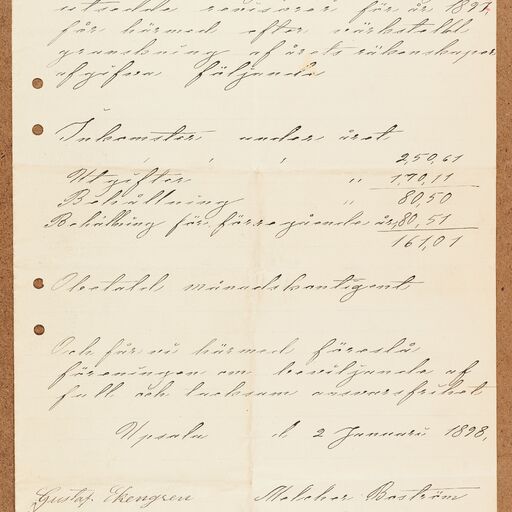 utsedde revisorer för år 1897,
får härmed efter värkstäld
granskning af årets räkenskaper
afgifva följande
Inkomster under året
" " " 250,61
Utgifter " 170,11
Behållning " 80,50
Behållning från föregående år, 80,51
161,01
Obetald månadskontigent
Och får vi härmed föreslå
föreningen om beviljande af
full och tacksam ansvarsfrihet
Upsala d 2 Januari 1898,
Gustaf Ekengren Melcher Boström